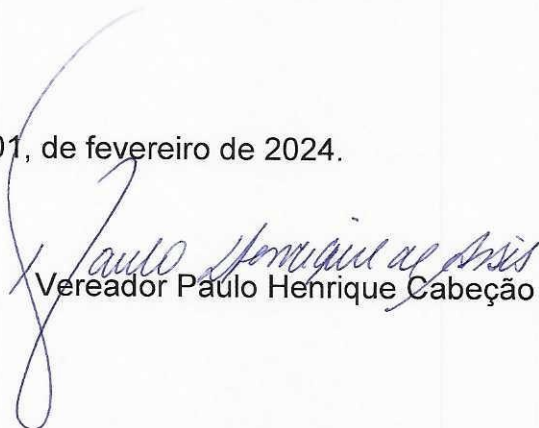 01, de fevereiro de 2024.
Paulo Henrique de Assis
Vereador Paulo Henrique Cabeção